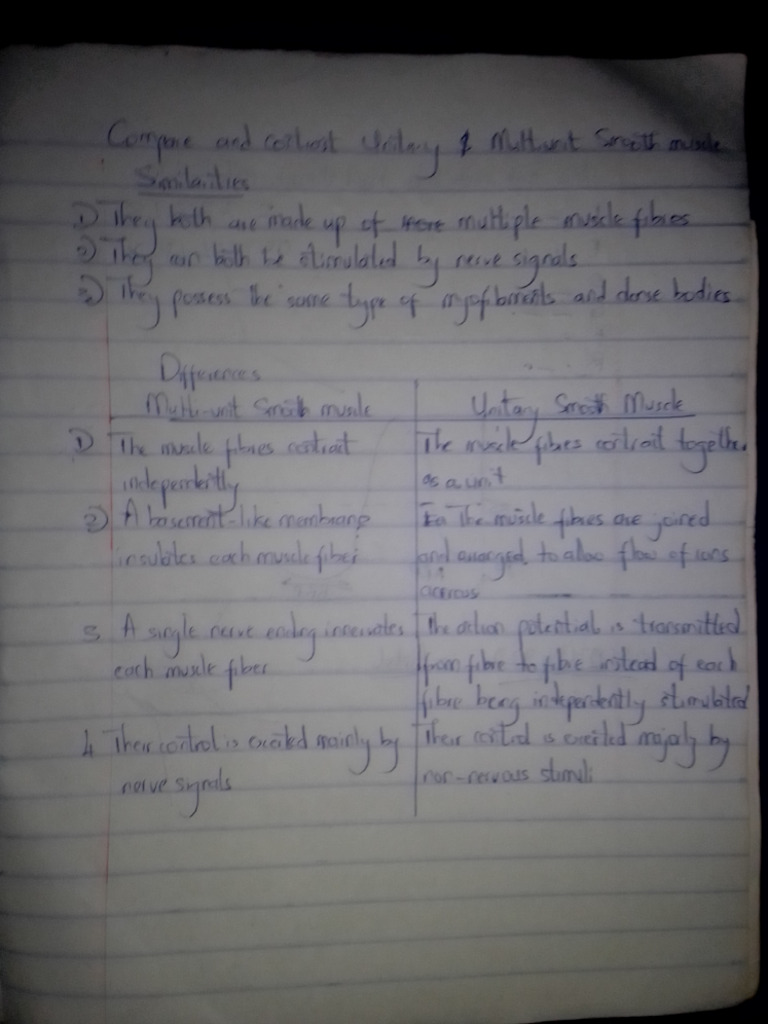 Compare and contrast Unitary & Multi-unit Smooth muscle
Similarities
1) They both are made up of more multiple muscle fibres
2) They can both be stimulated by nerve signals
3) They possess the same type of myofilaments and dense bodies
Differences
Multi-unit Smooth muscle
Unitary Smooth Muscle
1) The muscle fibres contract
independently
The muscle fibres contract together
as a unit
2) A basement-like membrane
insulates each muscle fiber
The muscle fibres are joined
and arranged to allow flow of ions
across
3 A single nerve ending innervates
each muscle fiber
The action potential is transmitted
from fibre to fibre instead of each
fibre being independently stimulated
4 Their control is excited mainly by
nerve signals
Their control is excited majorly by
non-nervous stimuli